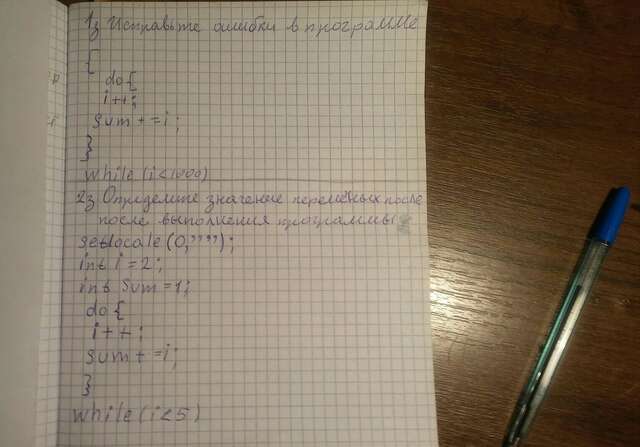 1з Исправьте ошибки в программе
{
do{
i++;
sum+=i;
}
while(i<1000)
2з Определите значение перемённых после
после выполнения программы
setlocale(0,"");
int i=2;
int sum=1;
do{
i++;
sum+=i;
}
while(i<5)